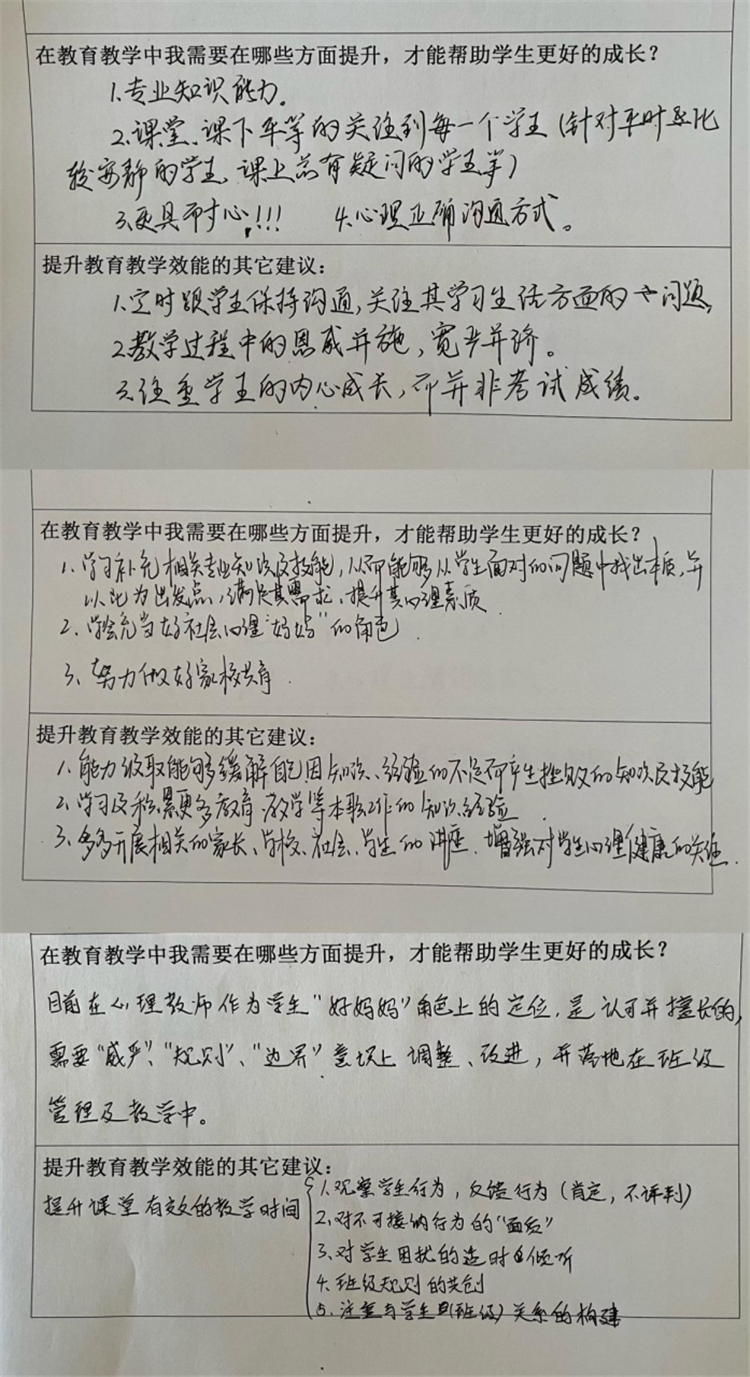 在教育教学中我需要在哪些方面提升，才能帮助学生更好的成长？
1.专业知识能力。
2.课堂、课下平等的关注到每一个学生（针对平时比
较安静的学生、课上总有疑问的学生等）
3.更具耐心!!! 4.心理正确沟通方式。
提升教育教学效能的其它建议：
1.定时跟学生保持沟通,关注其学习生活方面的问题,
2.教学过程中的恩威并施，宽严并济。
3.注重学生的内心成长，而并非考试成绩。
在教育教学中我需要在哪些方面提升，才能帮助学生更好的成长？
1.学习补充相关专业知识及技能，从而能够从学生面对的问题中找出本质,并
以此为出发点，满足其需求、提升其心理素质.
2、学会充当好社会心理“妈妈”的角色.
3、努力做好家校共育.
提升教育教学效能的其它建议：
1.能力汲取能够缓解自己因知识、经验的不足而产生挫败的知识及技能
2.学习及积累更多教育、教学等本职工作的知识、经验.
3、多多开展相关的家长、学校、社会、学生的讲座、增强对学生心理健康的关注.
在教育教学中我需要在哪些方面提升，才能帮助学生更好的成长？
目前在心理教师作为学生“好妈妈”角色上的定位，是认可并擅长的,
需要“威严”、“规则”、“边界”意识上调整、改进，并落地在班级
管理及教学中。
提升教育教学效能的其它建议：
提升课堂有效的教学时间
1.观察学生行为，反馈行为（肯定，不评判）
2.对不可接纳行为的“面质”
3.对学生困扰的适时倾听
4.班级规则的共创
5.注重与学生(班级)关系的构建